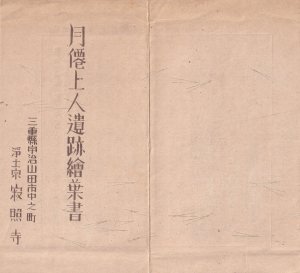 月僊上人遺跡繪葉書
三重縣宇治山田市中之町
浄土宗 寂照寺